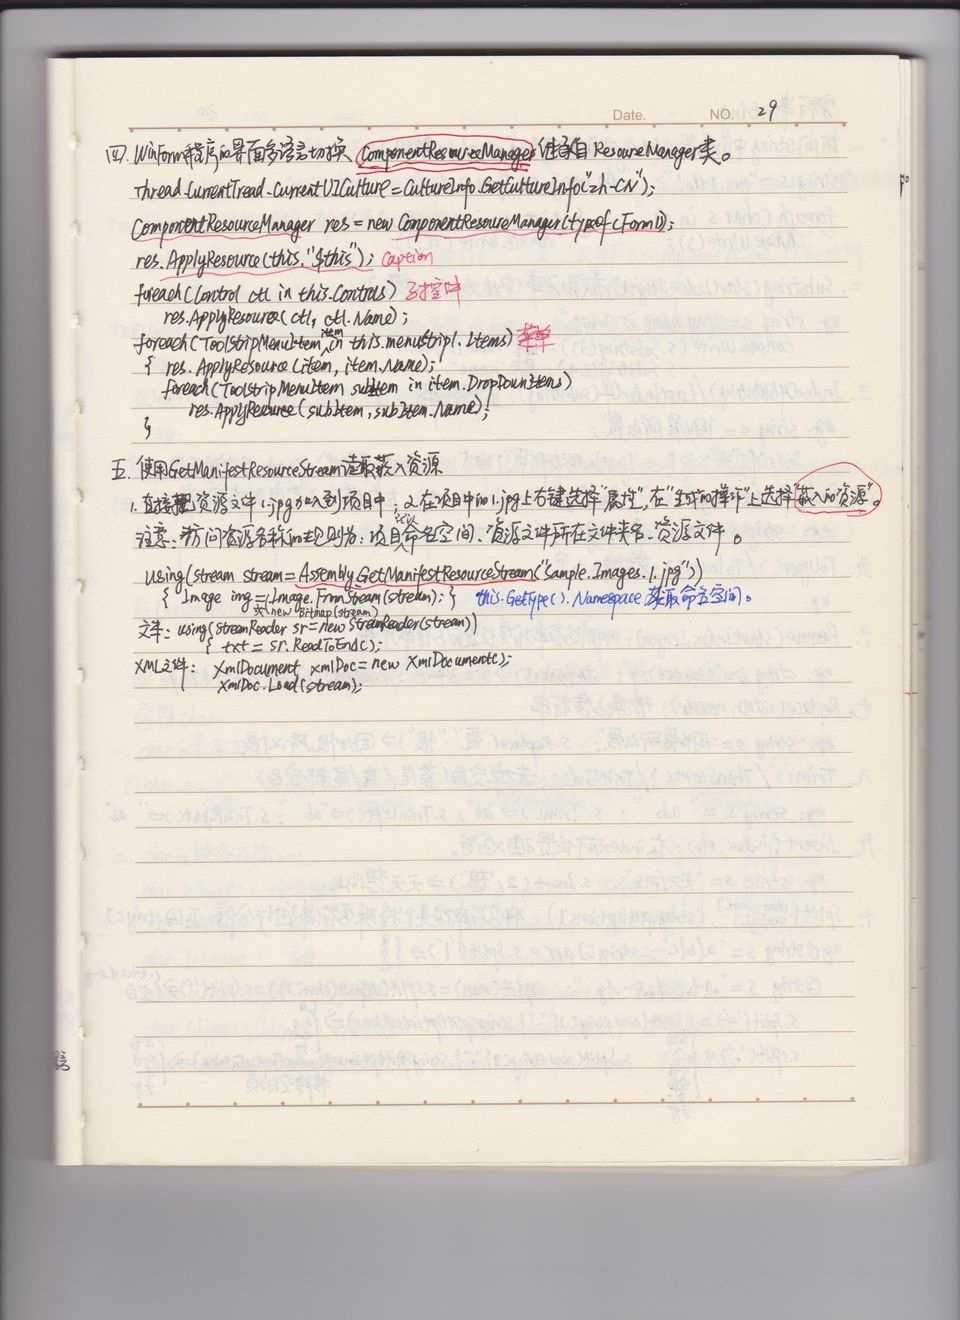 Date. NO. 29
四. Winform程序的界面多语言切换 ComponentResourceManager继承自ResourceManager类。
Thread.CurrentTread.CurrentUICulture=CultureInfo.GetCultureInfo("zh-CN");
ComponentResourceManager res = new ComponentResourceManager(typeof(Form1));
res.ApplyResource(this,"$this"); Caption
foreach(Control ctl in this.Controls) 子控件
res.ApplyResource(ctl, ctl.Name);
foreach(ToolStripMenuItem item in this.menuStrip1.Items) 菜单
{ res.ApplyResource(item, item.Name);
foreach(ToolstripMenuItem subItem in item.DropDownItems)
res.ApplyResource(subItem, subItem.Name);
}
五. 使用GetManifestResourceStream读取嵌入资源
1. 直接把资源文件1.jpg加入到项目中；2.在项目中的1.jpg上右键选择"属性",在"生成的操作"上选择"嵌入的资源"。
注意：访问资源名称的规则为：项目默认命名空间.资源文件所在文件夹名.资源文件。
using(stream stream=Assembly.GetManifestResourceStream("Sample.Images.1.jpg"))
{ Image img = Image.FromStream(stream); } this.GetType().Namespace 获取命名空间。
或new Bitmap(stream)
文本: using(StreamReader sr=new StreamReader(stream))
{ txt = sr.ReadToEnd();
XML文件: XmlDocument xmlDoc=new XmlDocument();
xmlDoc.Load(stream);